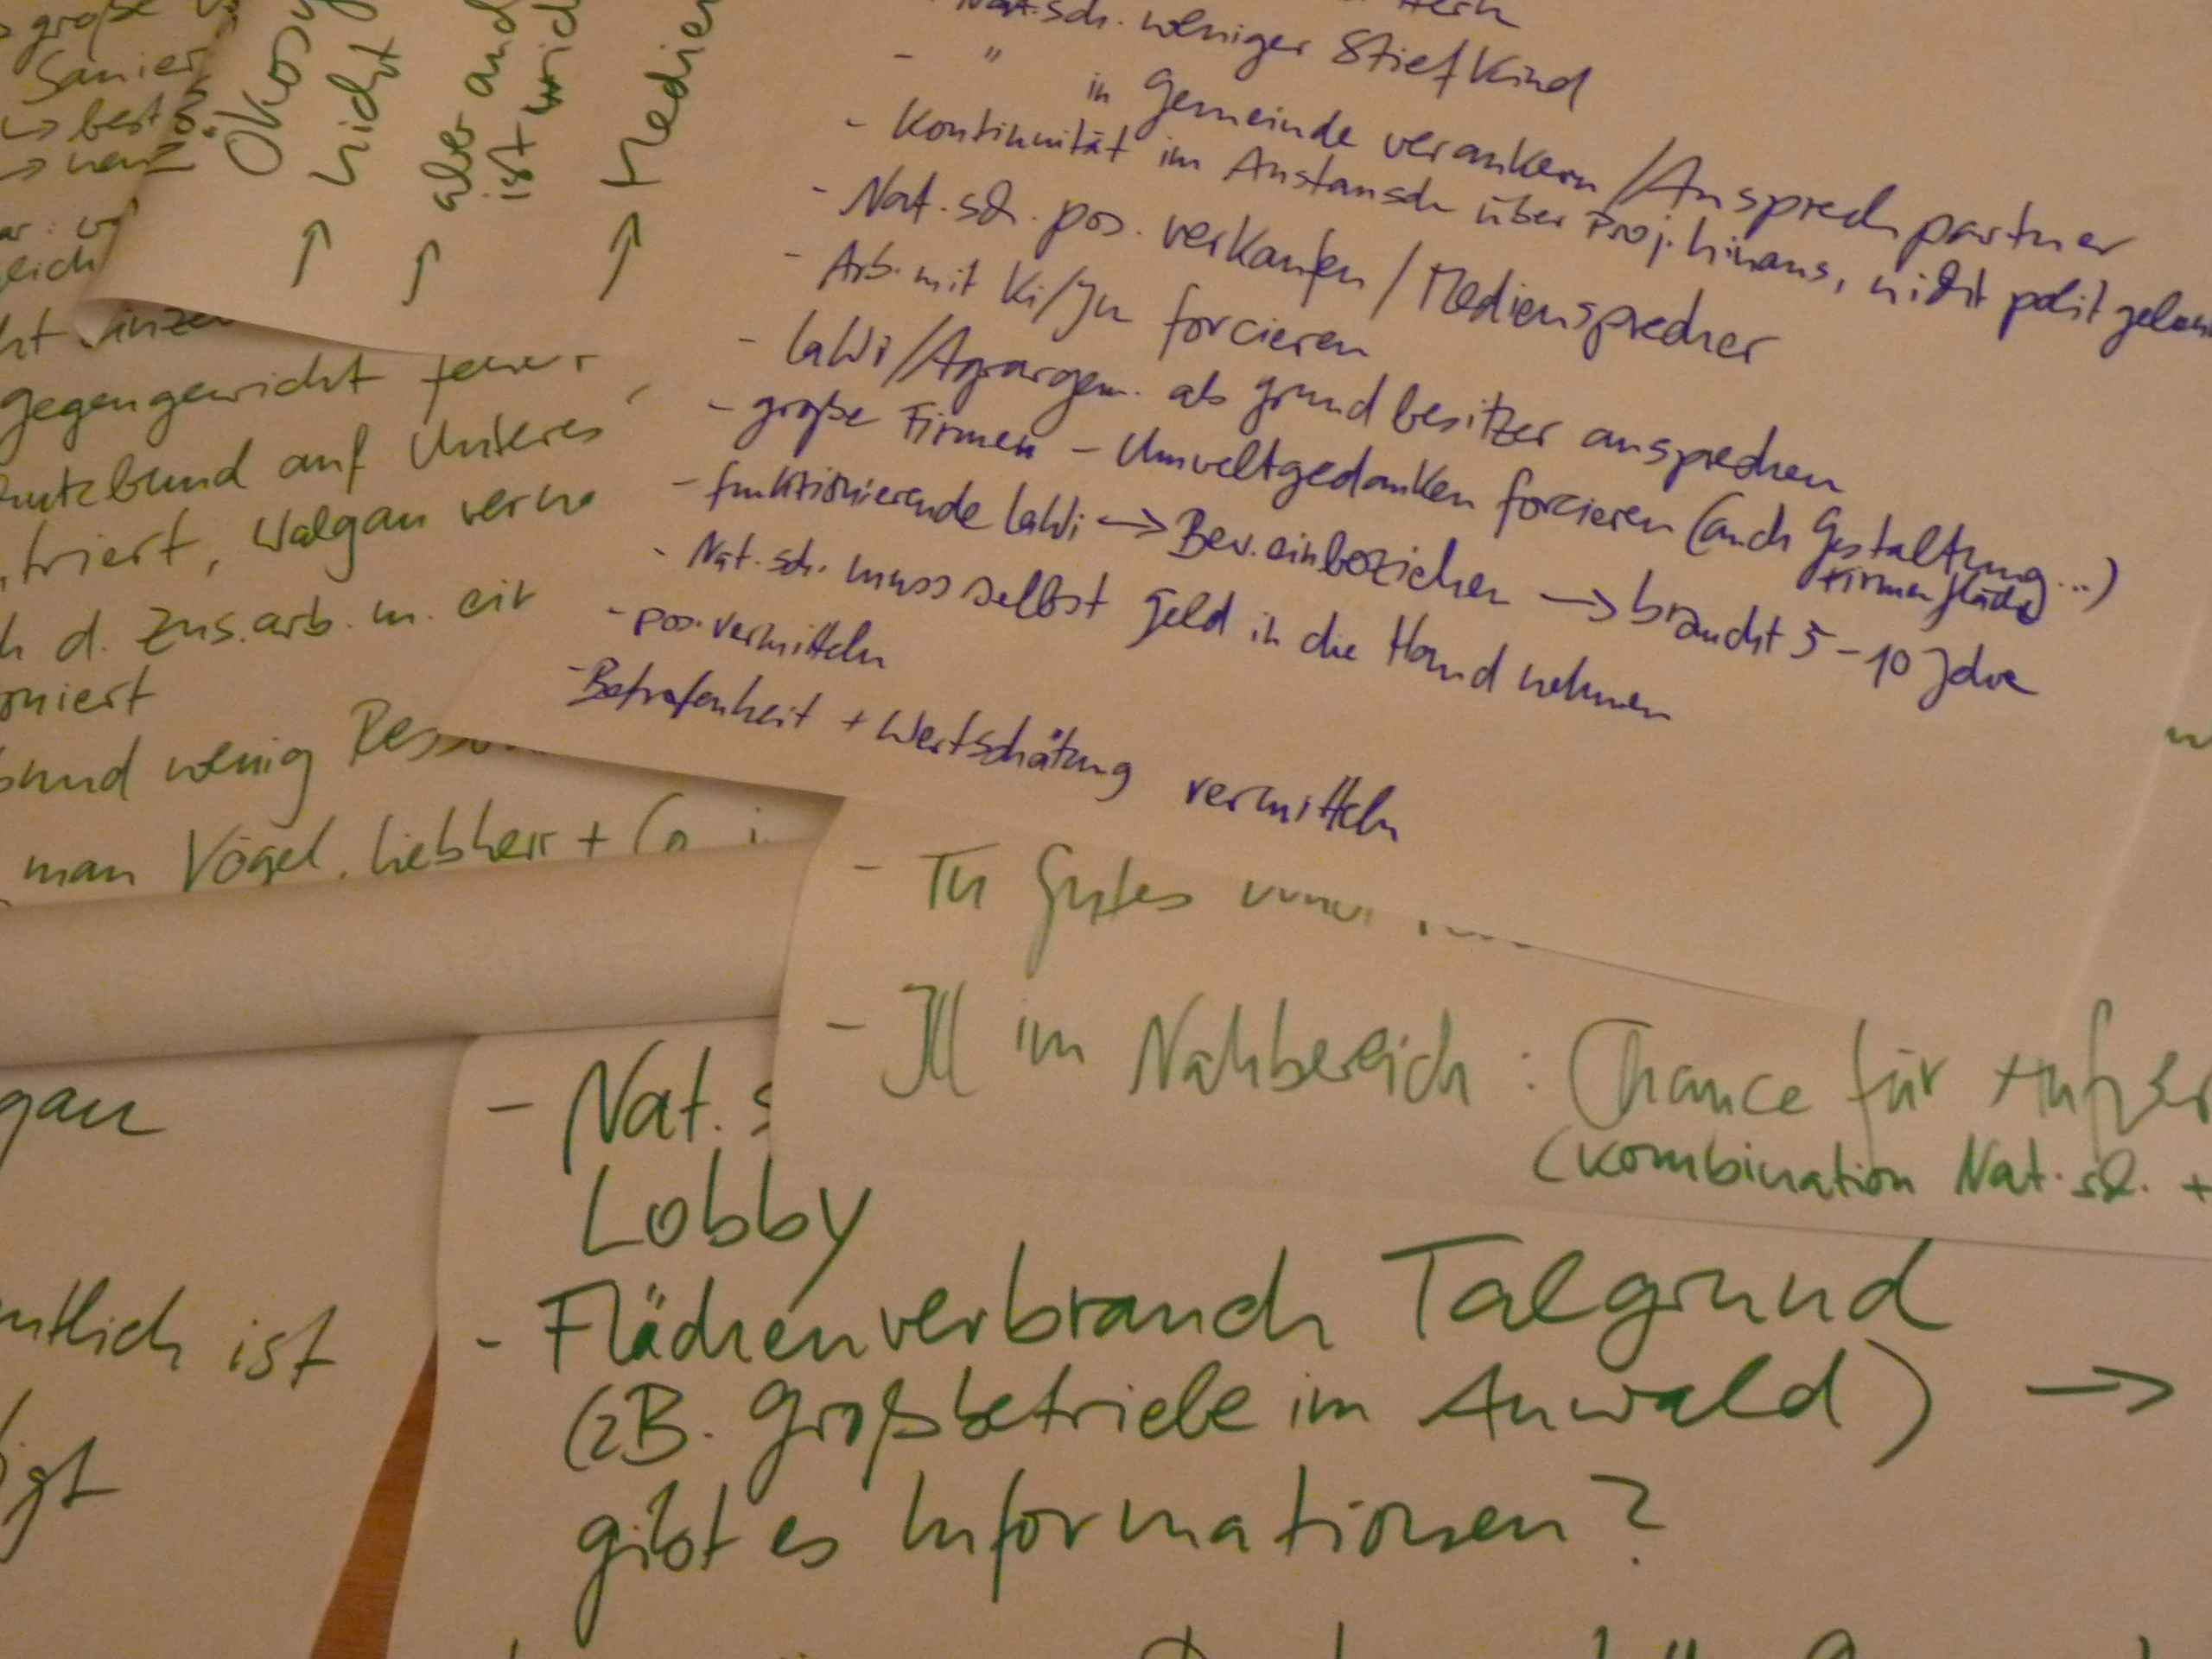 große
Sanier
→ best
gegengewicht
auf Unteres
triert, Walgau
d. Zus.arb. m.
oniert
wenig
man Vögel, Liebherr + Co
nicht
aber
ist
→ Medien
Nat.sch. weniger Stiefkind
- " in Gemeinde verankern / Ansprechpartner
- Kontinuität im Austausch über Proj. hinaus, nicht polit
- Nat.sch. pos. verkaufen / Mediensprecher
- Arb. mit Ki/Ju forcieren
- LaWi/Agrargem. als Grundbesitzer ansprechen
- große Firmen - Umweltgedanken forcieren (auch Gestaltung...)
Firmenfläche
- funktionierende LaWi → Bev. einbeziehen → braucht 5-10 Jahre
- Nat.sch. muss selbst Geld in die Hand nehmen
- pos. vermitteln
- Betrofenheit + Wertschätzung vermitteln
- Tu Gutes
- Ill im Nahbereich : Chance für
(Kombination Nat.sch. +
gau
- Nat. s
Lobby
- Flächenverbrauch Talgrund
(zB. Großbetriebe im Auwald) →
gibt es Informationen?
ntlich ist
igt